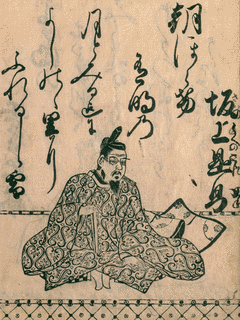 坂上是則
朝ほらけ
有明乃
月とみる迄に
よしのゝ里に
ふれるしら雪